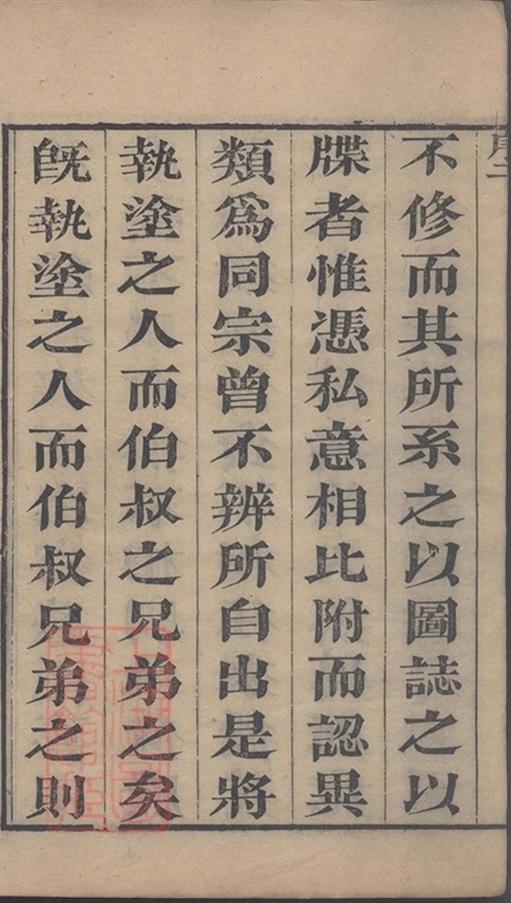 不修而其所系之以圖誌之以
牒者惟憑私意相比附而認異
類爲同宗曾不辨所自出是將
執塗之人而伯叔之兄弟之矣
旣執塗之人而伯叔兄弟之則